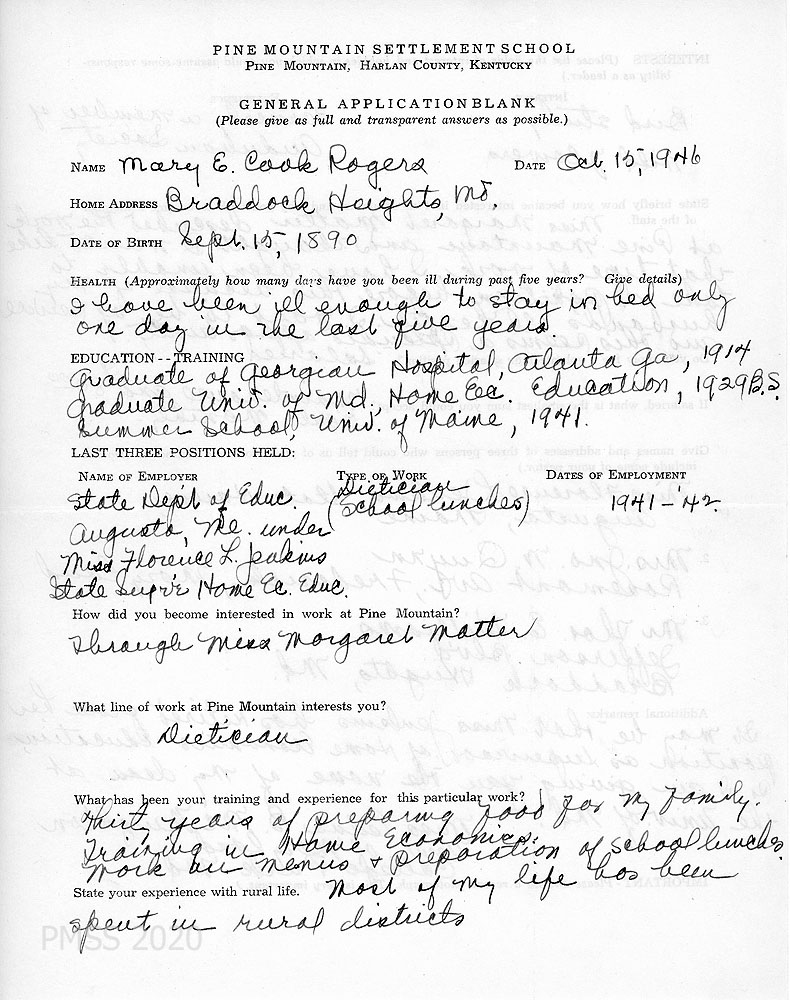 PINE MOUNTAIN SETTLEMENT SCHOOL
PINE MOUNTAIN, HARLAN COUNTY, KENTUCKY
GENERAL APPLICATION BLANK
(Please give as full and transparent answers as possible.)
NAME Mary E. Cook Rogers DATE Oct. 15, 1946
HOME ADDRESS Braddock Heights, Md.
DATE OF BIRTH Sept. 15, 1890
HEALTH (Approximately how many days have you been ill during past five years? Give details)
I have been ill enough to stay in bed only
one day in the last five years
EDUCATION--TRAINING
Graduate of Georgian Hospital, Atlanta Ga, 1914
Graduate Univ. of Md., Home Ec. Education, 1929 B.S.
Summer School, Univ. of Maine, 1941.
LAST THREE POSITIONS HELD:
NAME OF EMPLOYER TYPE OF WORK DATES OF EMPLOYMENT
State Dept of Educ. Dietician 1941-'42
Augusta, Me. under (School lunches)
Miss Florence L. Jenkins
State Supv'r Home Ec. Educ.
How did you become interested in work at Pine Mountain?
Through Miss Margaret Motter
What line of work at Pine Mountain interests you?
Dietician
What has been your training and experience for this particular work?
Thirty years of preparing food for my family.
Training in Home Economics.
Work on menus & preparation of school lunches
State your experience with rural life. Most of my life has been
spent in rural districts
PMSS 2020